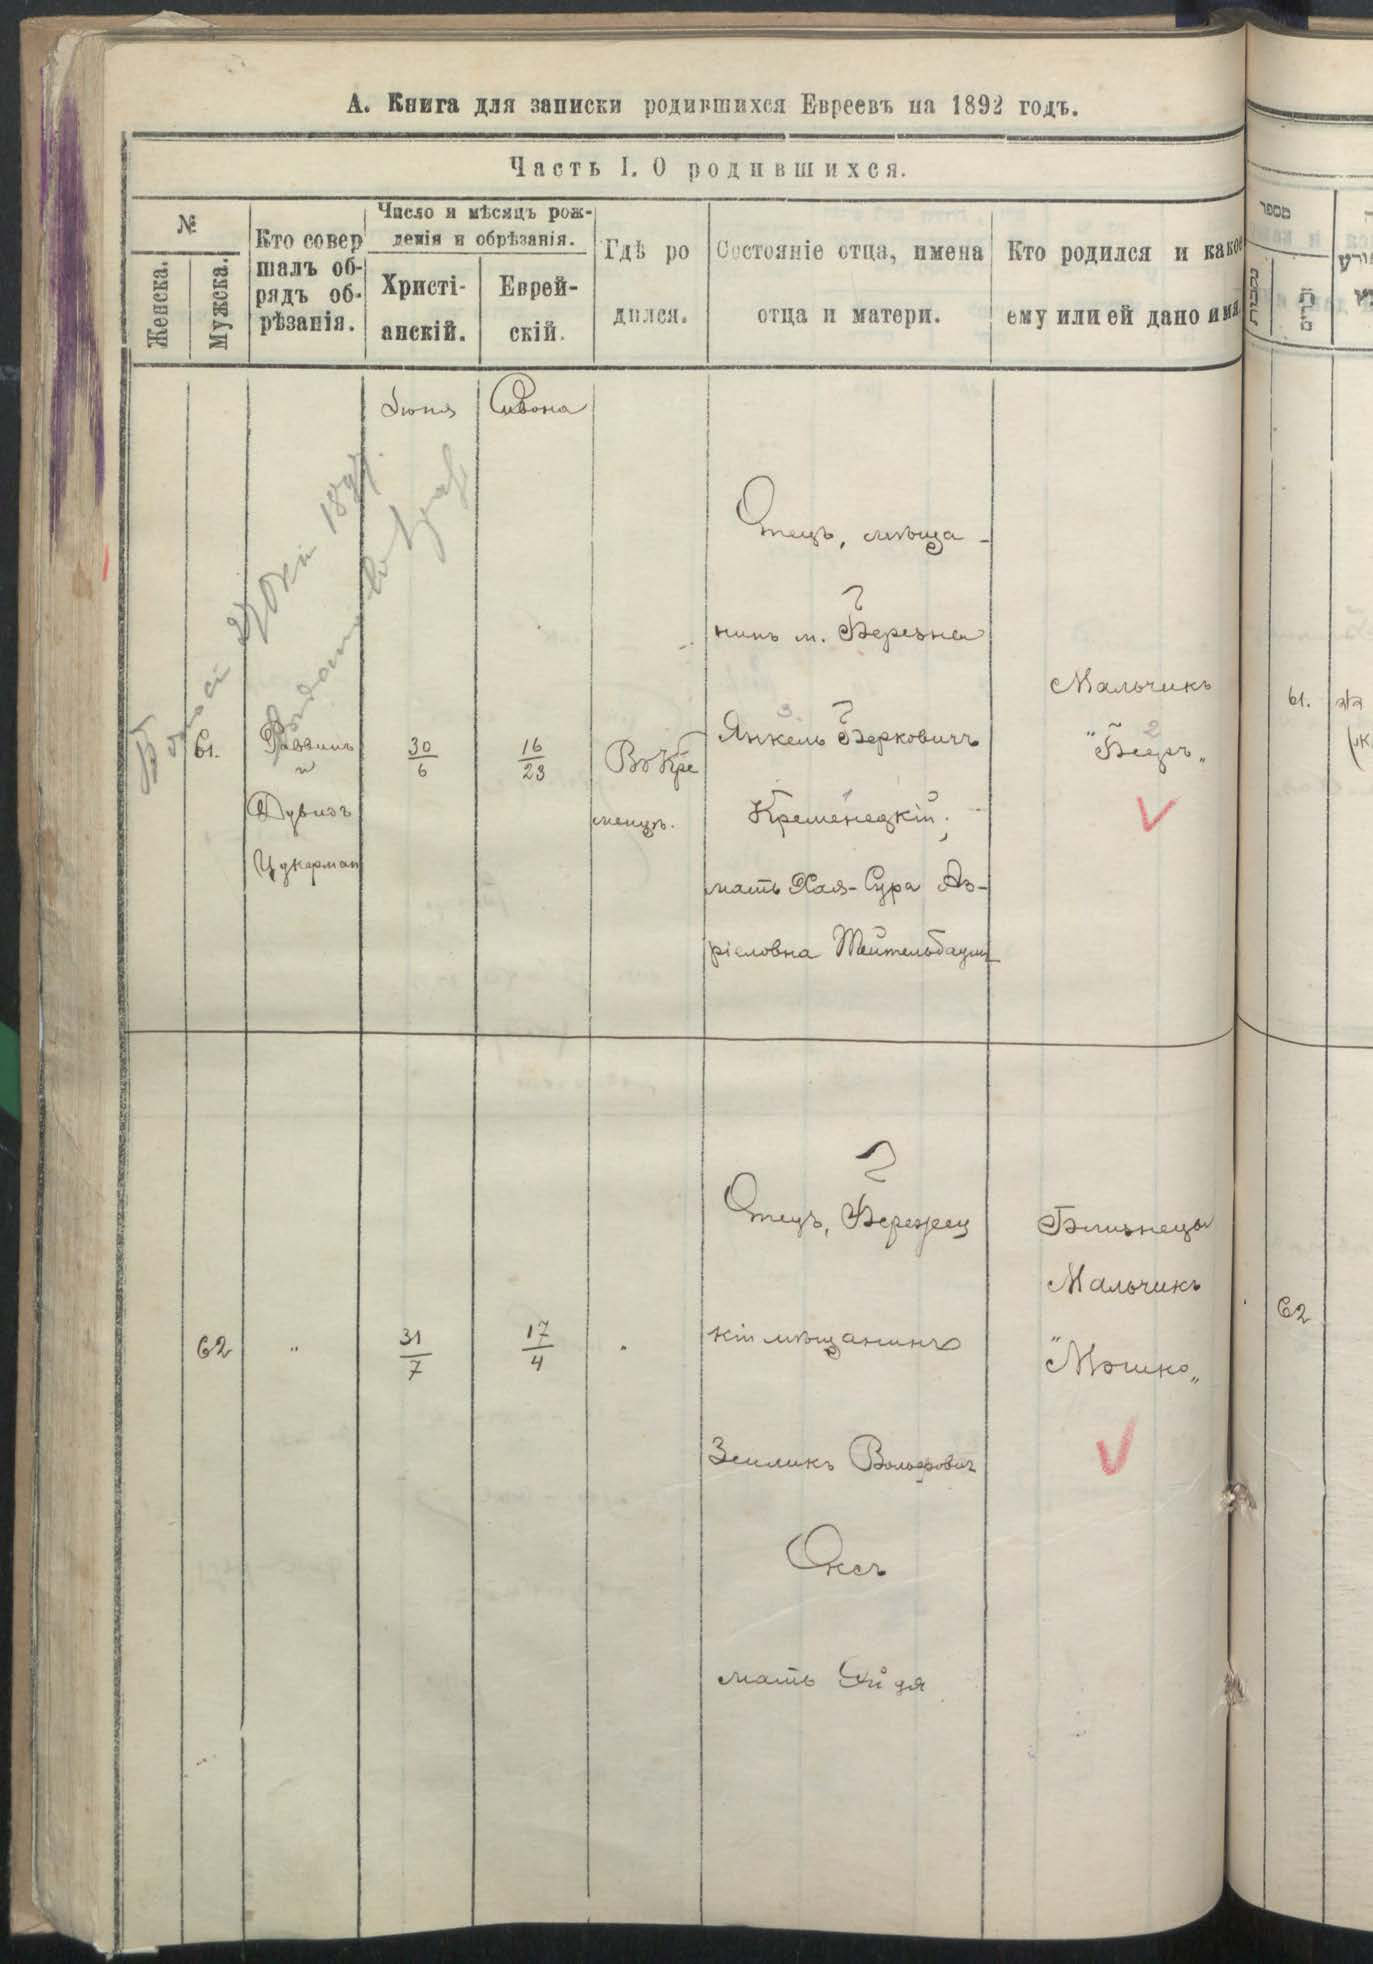 А. Книга для записки родившихся Евреевъ на 1892 годъ.
Часть I. О родившихся.
№
Женска.
Мужска.
Кто совер
шалъ об-
рядъ об-
рѣзанія.
Число и мѣсяцъ рож-
денія и обрѣзанія.
Христі-
анскій.
Еврей-
скій.
Гдѣ ро
дился.
Состояніе отца, имена
отца и матери.
Кто родился и какое
ему или ей дано имя.
Іюня
Сивона
61.
Раввинъ
и
Дувидъ
Цукерман
30
6
16
23
Въ Кре
менцѣ.
Отецъ, мѣща-
нинъ м. Березна
Янкель Берковичъ
Кременецкій;
мать Хая-Сура Аз-
ріеловна Тейтельбаумъ
Мальчикъ
"Беръ"
62
"
31
7
17
4
"
Отецъ, Бережец
кій мѣщанинъ
Зейликъ Вольфович
Оксъ
мать
Близнецы
Мальчикъ
"Мошко"
מספר
נקבות
זכרים
61.
62